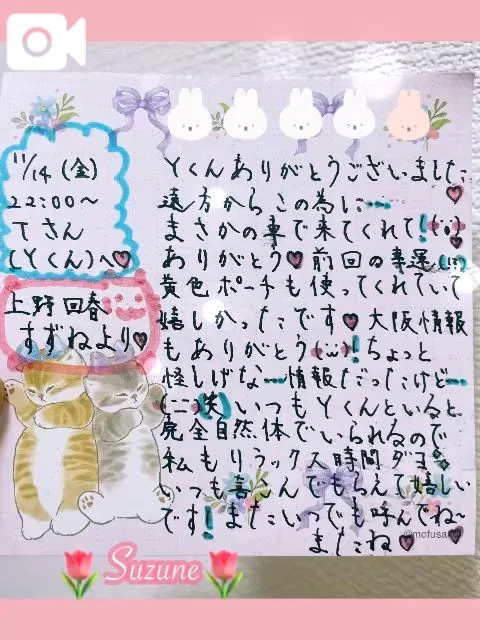 11/14 (金)
22:00〜
Tさん
(Yくん)へ♥
上野回春
すずねより♥
Yくんありがとうございました
遠方からこの為に…
まさかの車で来てくれて!
ありがとう♥前回の幸運
黄色ポーチも使ってくれていて
嬉しかったです♥大阪情報
もありがとう!ちょっと
怪しげな…情報だったけど…
笑 いつもYくんといると
完全自然体でいられるので
私もリラックス時間ダヨ
いつも喜んでもらえて嬉しい
です!またいつでも呼んでね〜
またね♥
@mofusand
Suzune